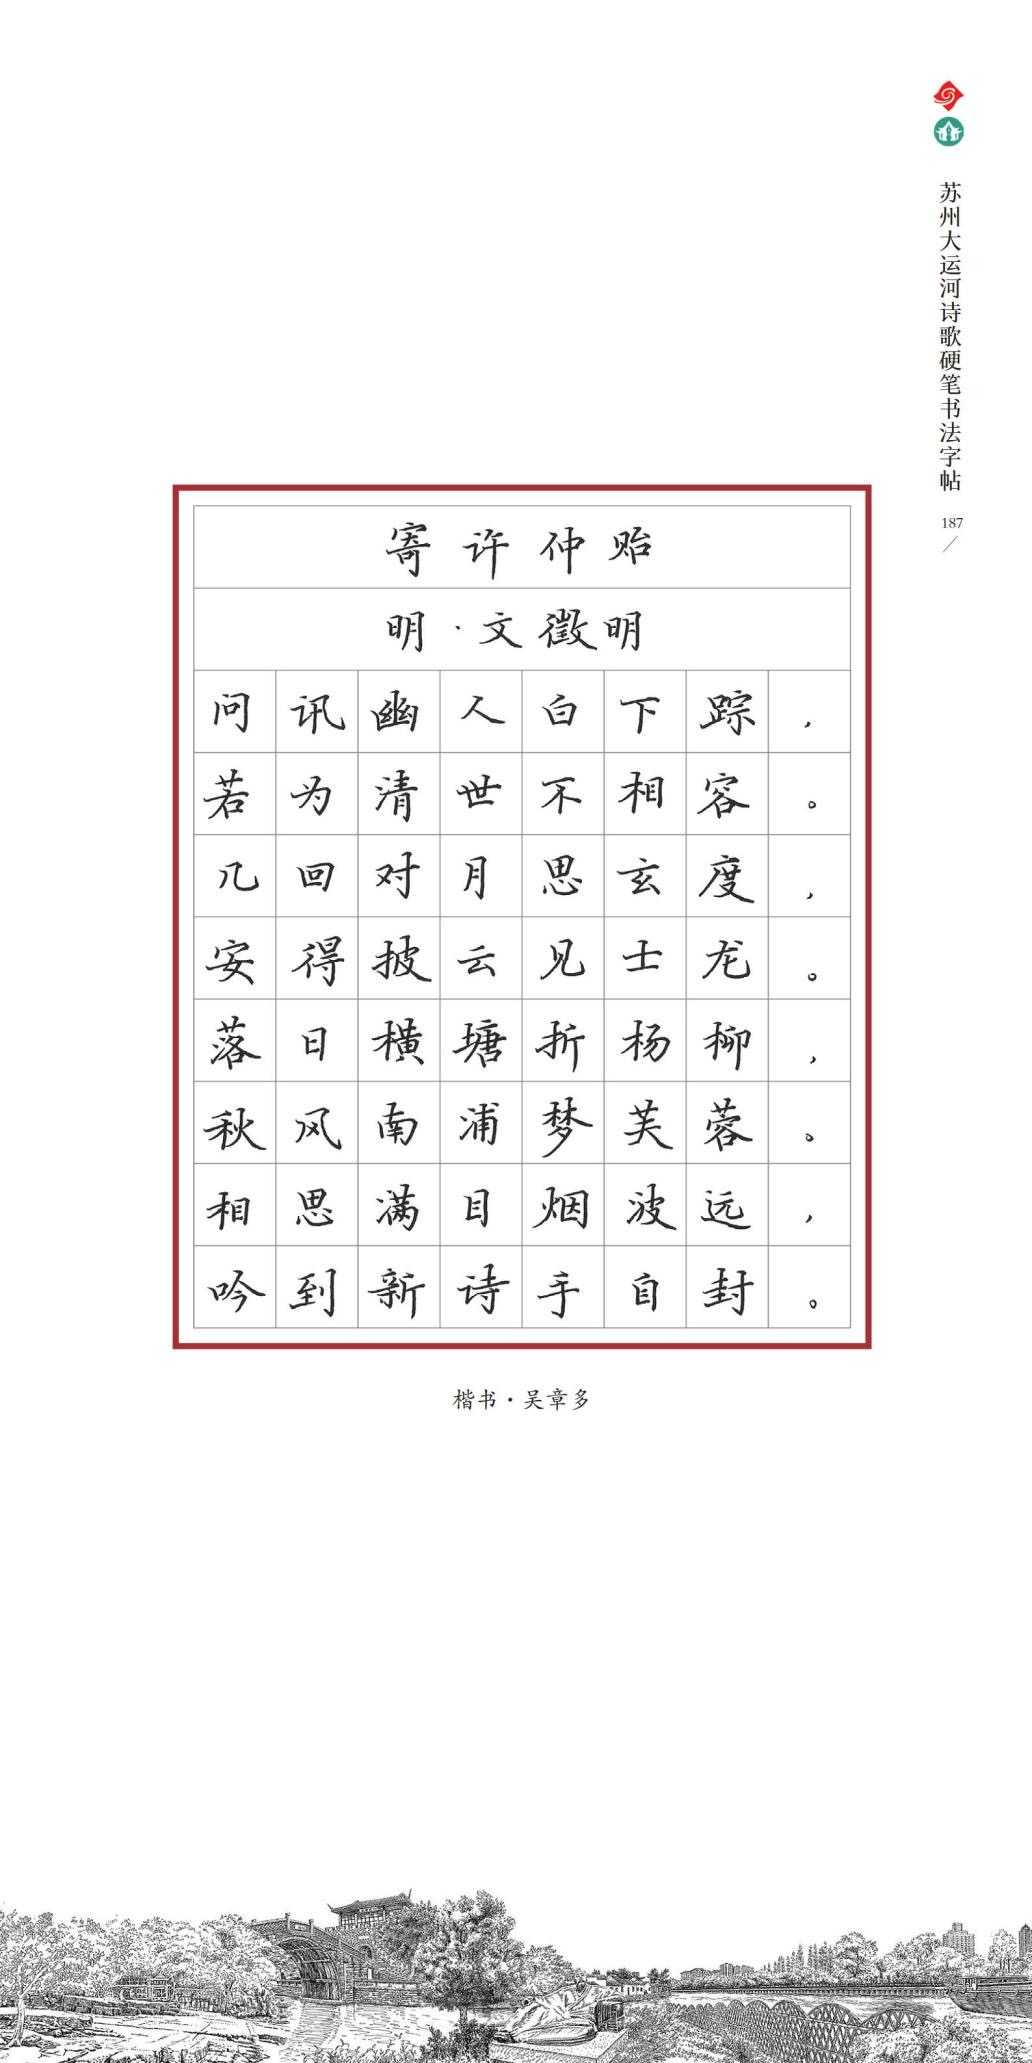 苏州大运河诗歌硬笔书法字帖
187
寄许仲贻
明·文徵明
问讯幽人白下踪，
若为清世不相容。
几回对月思玄度，
安得披云见士龙。
落日横塘折杨柳，
秋风南浦梦芙蓉。
相思满目烟波远，
吟到新诗手自封。
楷书·吴章多